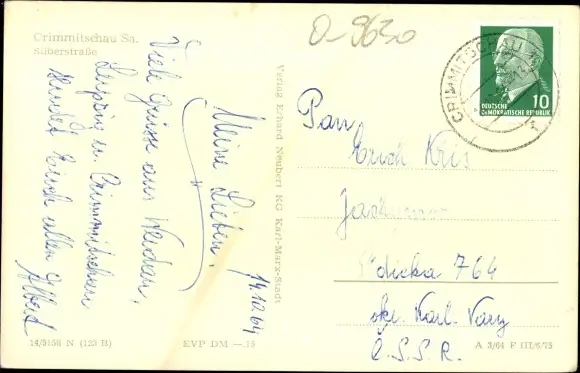 Crimmitschau Sa.
Silberstraße
O-9630
Meine Lieben,
14.12.64
Viele Grüsse aus Werdau,
Leipzig u. Crimmitschau
sendet Euch allen
Albert
14/5158 N (123 B)
EVP DM —.15
Verlag Erhard Neubert KG Karl-Marx-Stadt
CRIMMITSCHAU
DEUTSCHE
DEMOKRATISCHE REPUBLIK
10
Pan
Erich Kris
764
okr. Karl. Vary
Č.S.S.R.
A 3/64 F III/6/75